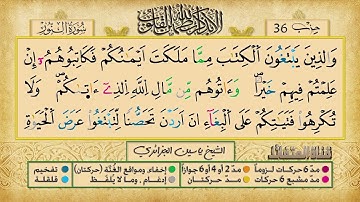 سُورَةُ النُّورِ
أَلَا بِذِكْرِ اللَّهِ تَطْمَئِنُّ الْقُلُوبُ
حزب 36
وَالَّذِينَ يَبْتَغُونَ الْكِتَٰبَ مِمَّا مَلَكَتْ أَيْمَٰنُكُمْ فَكَاتِبُوهُمْ إِنْ
عَلِمْتُمْ فِيهِمْ خَيْراً وَءَاتُوهُم مِّن مَّالِ اللَّهِ الَّذِے ءَاتَىٰكُمْ وَلَا
تُكْرِهُوا فَتَيَٰتِكُمْ عَلَى الْبِغَآءِ انَ اَرَدْنَ تَحَصُّناً لِّتَبْتَغُوا عَرَضَ الْحَيَوٰةِ
الشيخ ياسين الجزائري
مدّ 6 حركات لزوماً مدّ 2 أو 4 أو 6 جوازاً إخفاء، ومواقع الغُنَّة (حركتان) تفخيم
مدّ مشبع 6 حركات مدّ حركتان إدغام، وما لا يُلفَظ قلقلة